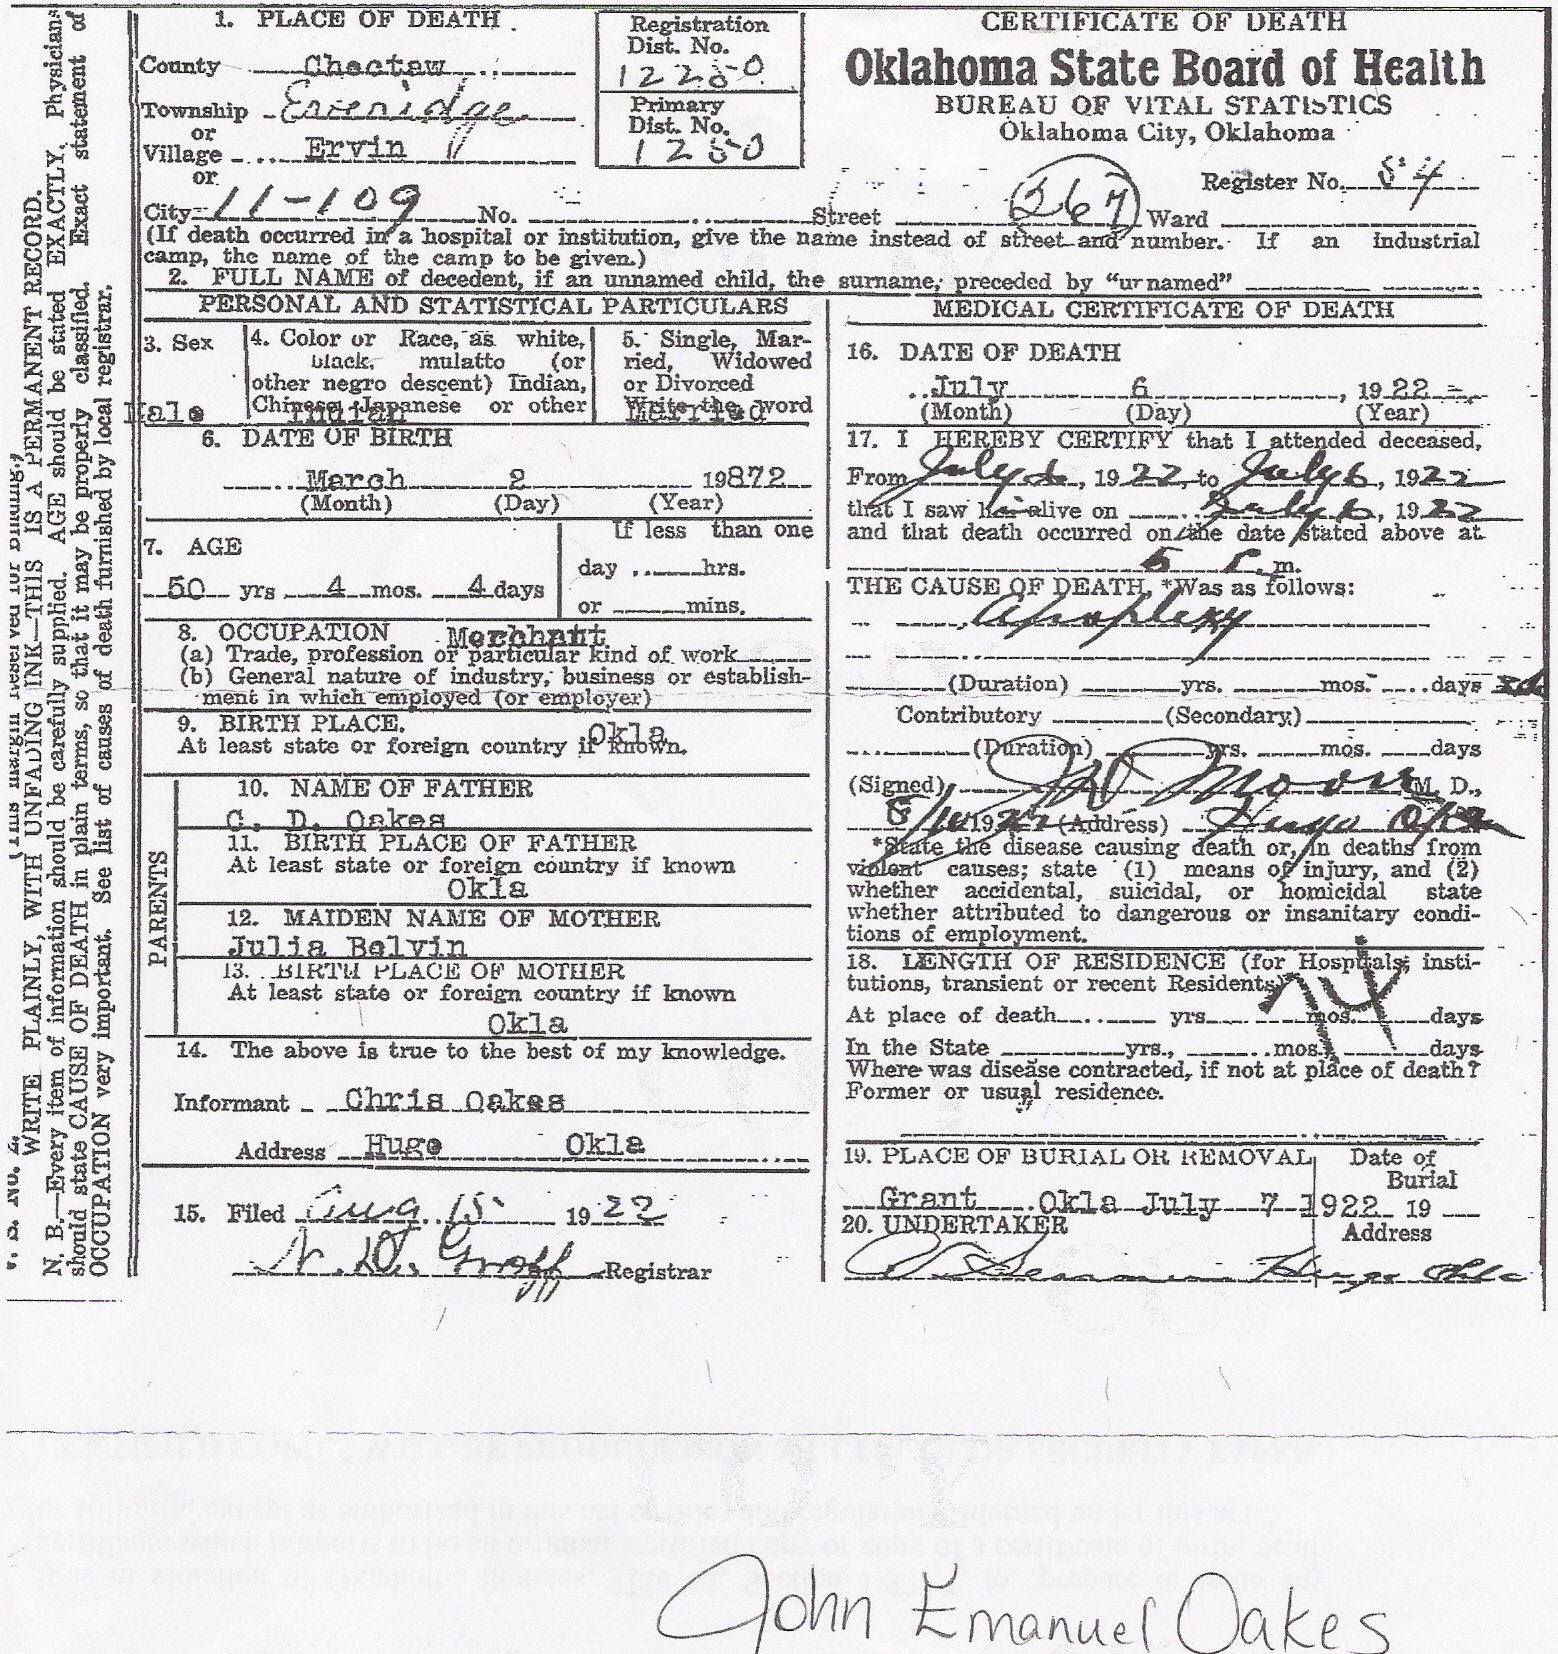 1. PLACE OF DEATH
County Choctaw
Township
or
Village Ervin
or
City 11-109 No. Street 367 Ward
Registration
Dist. No.
12250
Primary
Dist. No.
1250
CERTIFICATE OF DEATH
Oklahoma State Board of Health
BUREAU OF VITAL STATISTICS
Oklahoma City, Oklahoma
Register No. 84
(If death occurred in a hospital or institution, give the name instead of street and number. If an industrial
camp, the name of the camp to be given.)
2. FULL NAME of decedent, if an unnamed child, the surname, preceded by "unnamed"
PERSONAL AND STATISTICAL PARTICULARS
3. Sex
Male
4. Color or Race, as white,
black, mulatto (or
other negro descent) Indian,
Chinese, Japanese or other
Indian
5. Single, Mar-
ried, Widowed
or Divorced
Write the word
Married
6. DATE OF BIRTH
March 2 19872
(Month) (Day) (Year)
7. AGE
50 yrs 4 mos. 4 days
If less than one
day hrs.
or mins.
8. OCCUPATION Merchant
(a) Trade, profession or particular kind of work
(b) General nature of industry, business or establish-
ment in which employed (or employer)
9. BIRTH PLACE. Okla
At least state or foreign country if known.
PARENTS
10. NAME OF FATHER
C. D. Oakes
11. BIRTH PLACE OF FATHER
At least state or foreign country if known
Okla
12. MAIDEN NAME OF MOTHER
Julia Belvin
13. BIRTH PLACE OF MOTHER
At least state or foreign country if known
Okla
14. The above is true to the best of my knowledge.
Informant Chris Oakes
Address Hugo Okla
15. Filed Aug 15 1922
Registrar
MEDICAL CERTIFICATE OF DEATH
16. DATE OF DEATH
July 6, 1922
(Month) (Day) (Year)
17. I HEREBY CERTIFY that I attended deceased,
From July 6, 1922, to July 6, 1922
that I saw him alive on July 6, 1922
and that death occurred on the date stated above at
5 P. m.
THE CAUSE OF DEATH *Was as follows:
Apoplexy
(Duration) yrs. mos. days
Contributory (Secondary)
(Duration) yrs. mos. days
(Signed) J W Moore M. D.,
8/10 1922 (Address) Hugo Okla
*State the disease causing death or, in deaths from
violent causes; state (1) means of injury, and (2)
whether accidental, suicidal, or homicidal state
whether attributed to dangerous or insanitary condi-
tions of employment.
18. LENGTH OF RESIDENCE (for Hospitals, insti-
tutions, transient or recent Residents)
74
At place of death yrs. mos. days
In the State yrs., mos. days
Where was disease contracted, if not at place of death?
Former or usual residence.
19. PLACE OF BURIAL OR REMOVAL
Date of
Burial
Grant Okla July 7 1922 19
20. UNDERTAKER Address
Hugo Okla
V. S. No. 2. (This margin reserved for binding.)
WRITE PLAINLY, WITH UNFADING INK—THIS IS A PERMANENT RECORD.
N. B.—Every item of information should be carefully supplied. AGE should be stated EXACTLY. Physicians
should state CAUSE OF DEATH in plain terms, so that it may be properly classified. Exact statement of
OCCUPATION very important. See list of causes of death furnished by local registrar.
John Emanuel Oakes